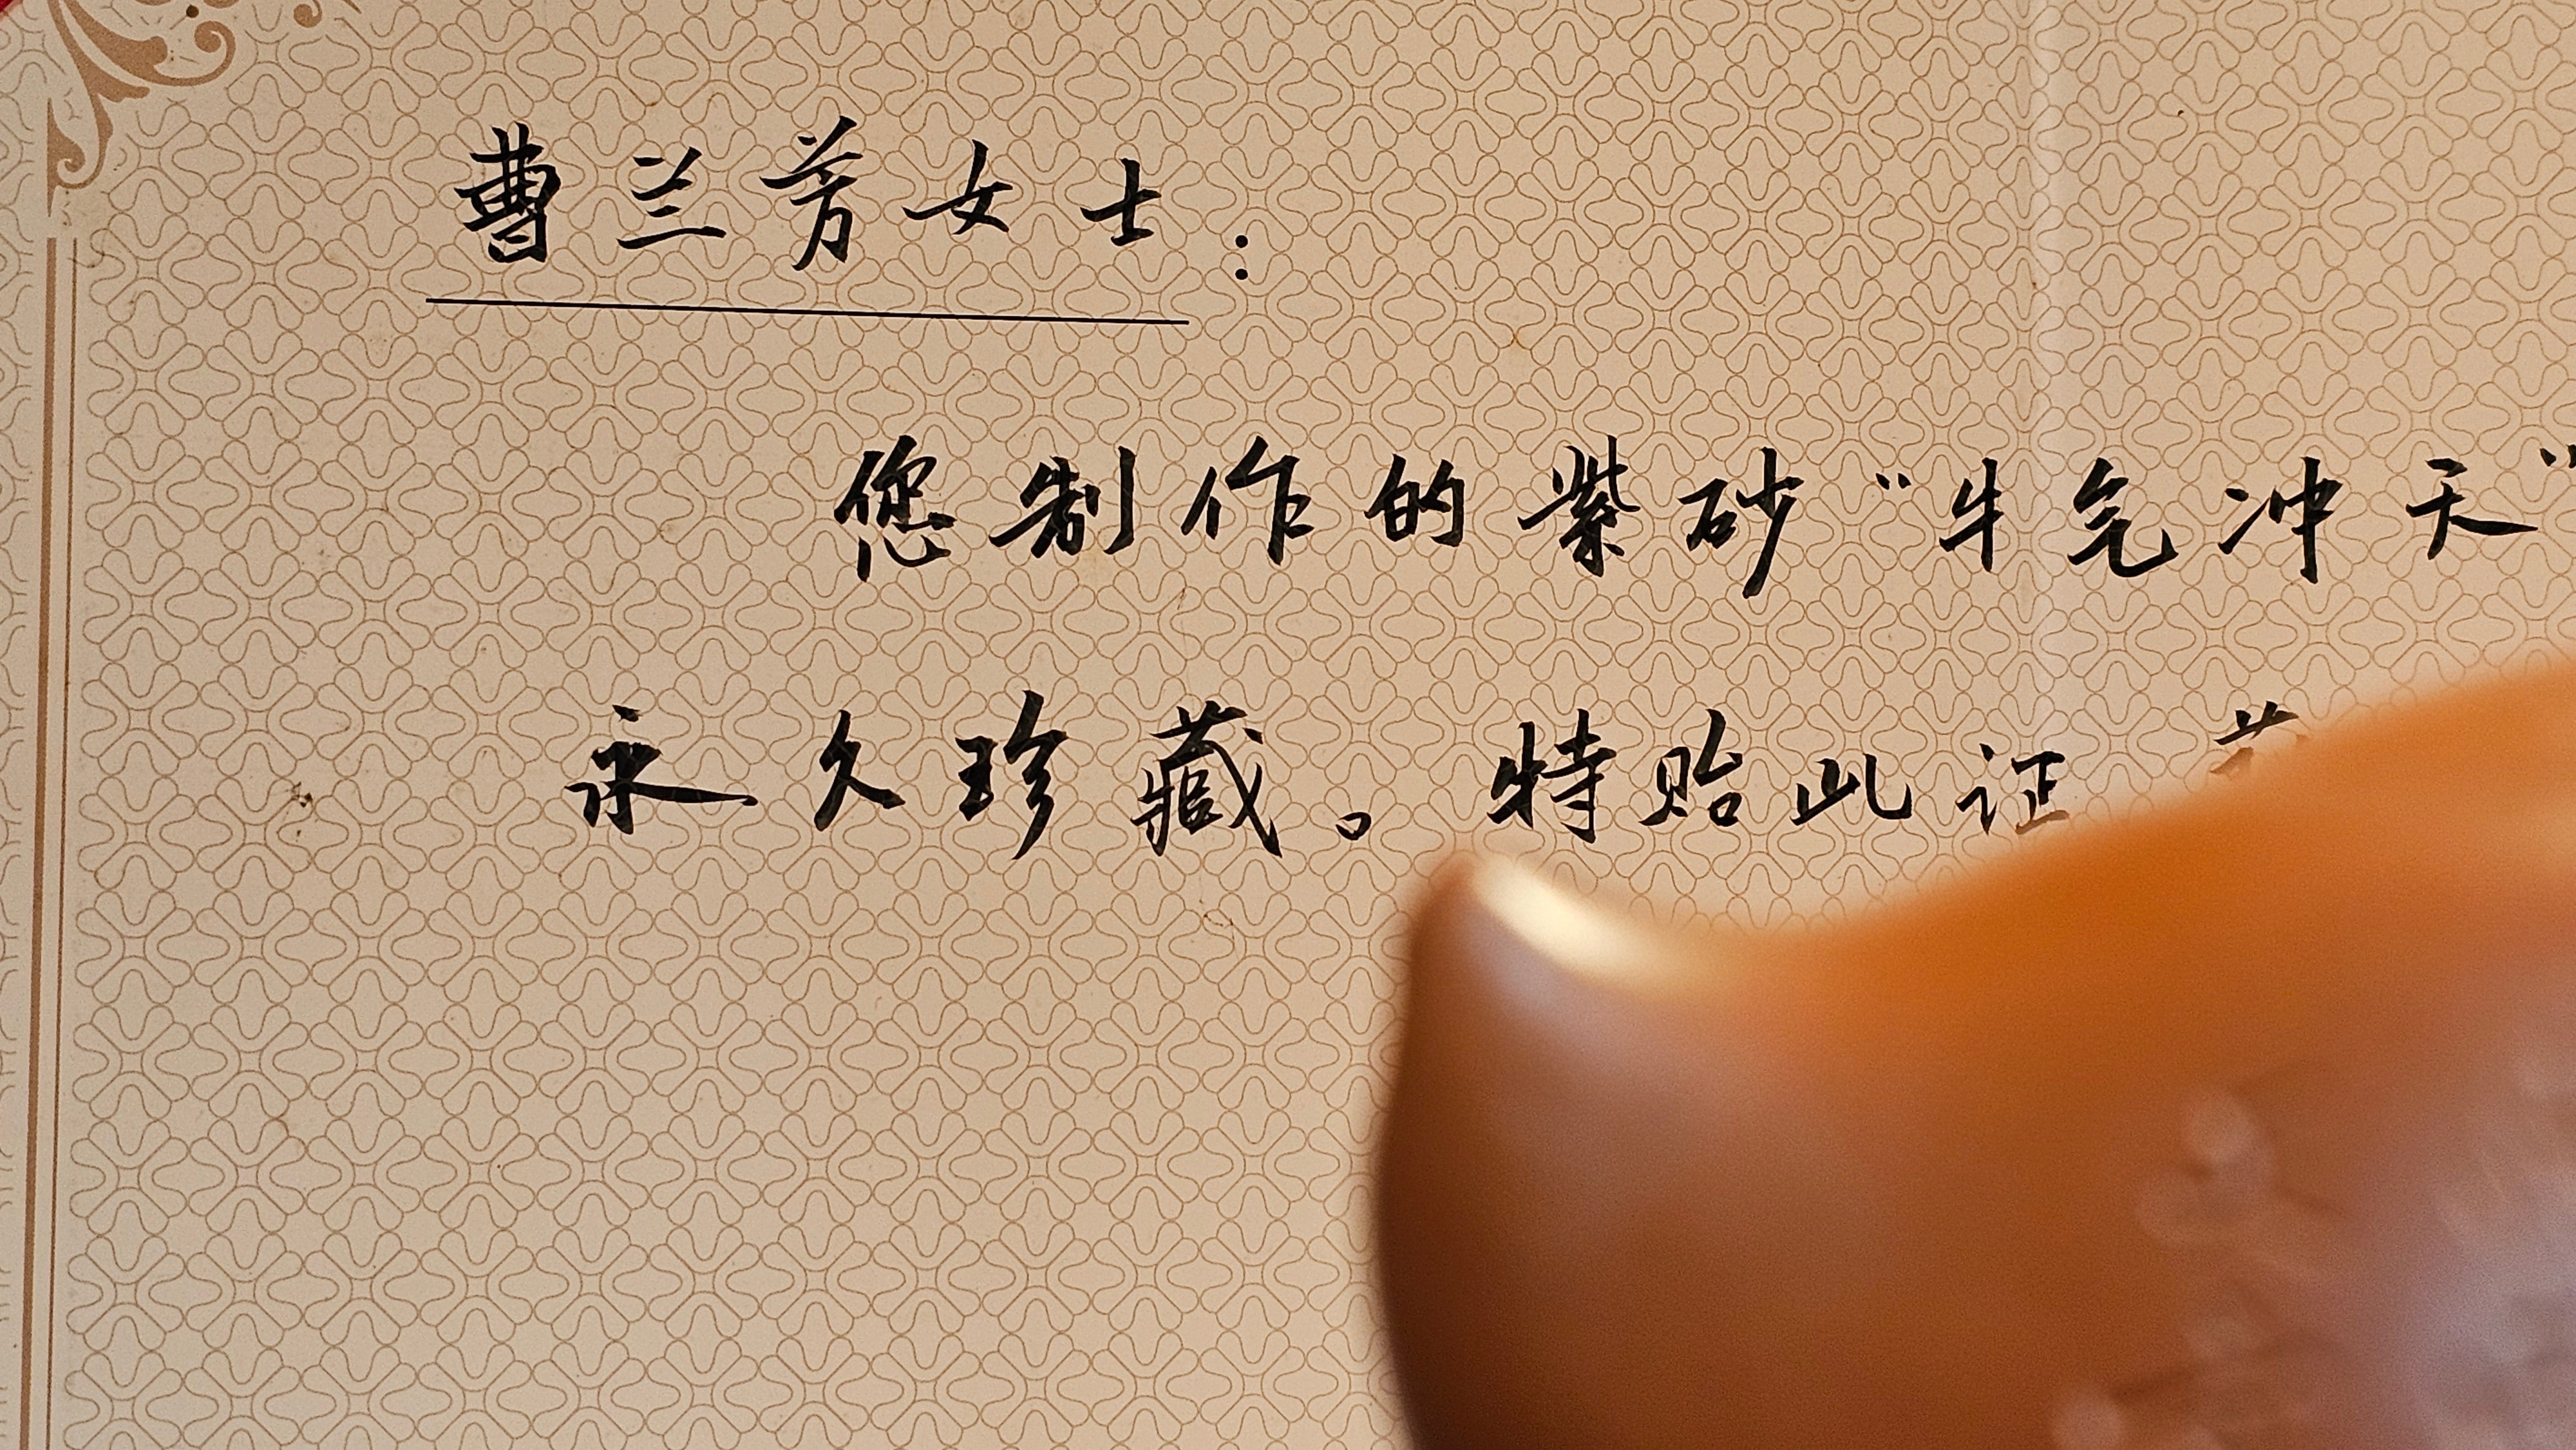 曹兰芳女士：
您制作的紫砂“牛气冲天”
永久珍藏。特贻此证